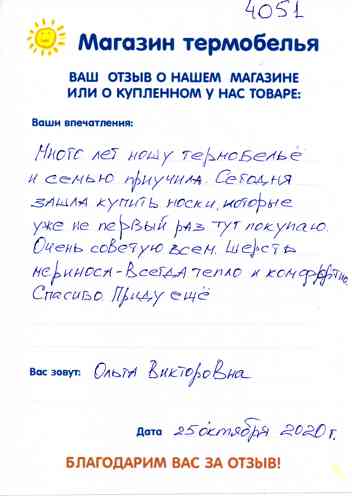 4051
Магазин термобелья
ВАШ ОТЗЫВ О НАШЕМ МАГАЗИНЕ
ИЛИ О КУПЛЕННОМ У НАС ТОВАРЕ:
Ваши впечатления:
Много лет ношу термобельё
и семью приучила. Сегодня
зашла купить носки, которые
уже не первый раз тут покупаю.
Очень советую всем. Шерсть
мериноса - всегда тепло и комфортно.
Спасибо. Приду ещё
Вас зовут: Ольга Викторовна
Дата 25 октября 2020 г.
БЛАГОДАРИМ ВАС ЗА ОТЗЫВ!